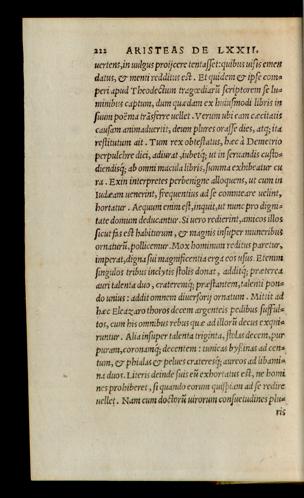 222 ARISTEAS DE LXXII.
uertent, in uulgus proijcere tentasset: quibus uisis emen
datus, & menti redditus est. Et quidem & ipse com-
peri apud Theodectum tragœdiarū scriptorem se lu-
minibus captum, dum quædam ex huiusmodi libris in
suum poëma trāsferre uellet. Verum ubi eam cæcitatis
causam animaduertit, deum plures orasse dies, atq; ita
restitutum ait. Tum rex obtestatus, hæc à Demetrio
perpulchre dici, adiurat, iubetq; ut in seruandis custo-
diendisq; ab omni macula libris, summa exhibeatur cu
ra. Exin interpretes perbenigne alloquens, ut cum in
Iudæam uenerint, frequentius ad se commeare uelint,
hortatur. Aequum enim est, inquit, ut nunc pro digni-
tate domum deducantur. Si uero redierint, amicos illos
sicut fas est habiturum, & magnis insuper muneribus
ornaturū, pollicemur. Mox hominum reditus paretur,
imperat, digna sui magnificentia erga eos usus. Etenim
singulos tribus inclytis stolis donat, additq; præterea
auri talenta duo, crateremq; præstantem, talenti pon-
do unius: addit omnem diuersorij ornatum. Mittit ad
hæc Eleazaro thoros decem argenteis pedibus suffultos,
tos, cum his omnibus rebus quæ ad illorū decus exqui-
runtur. Alia insuper talenta triginta, stolas decem, pur
puram, coronamq; decentem: tunicas byssinas ad cen-
tum, & phialas & pelues crateresq; aureos ad libami-
na duos. Literis deinde suis eū exhortatus est, ne homi
nes prohiberet, si quando eorum quispiam ad se redire
uellet. Nam cum doctorū uirorum consuetudines plu-
ris